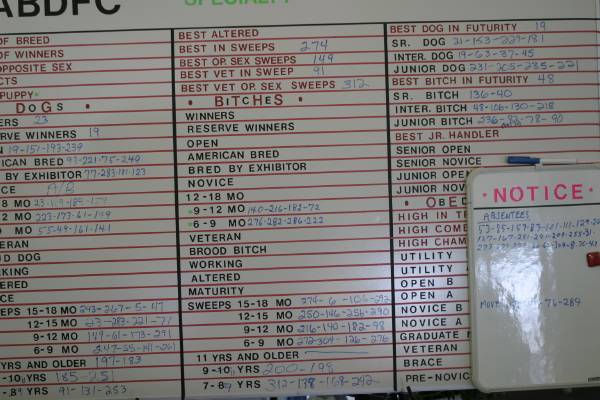 ABDFC
OF BREED
OF WINNERS
OPPOSITE SEX
CTS
PUPPY
• DOGS •
ERS 23
RVE WINNERS 19
N 19-151-193-239
ICAN BRED 93-221-75-249
BY EXHIBITOR 77-283-111-123
ICE A/B
8 MO
2 MO 223-173-61-159
MO 55-49-161-141
ERAN
UD DOG
KING
RED
ACE
SWEEPS 15-18 MO 243-267-5-47
12-15 MO
9-12 MO 149-61-173-291
6-9 MO 247-55-141-261
YEARS AND OLDER 197-183
-10 YRS 185-251
-89 YRS 91-131-253
BEST ALTERED
BEST IN SWEEPS 274
BEST OP. SEX SWEEPS 149
BEST VET IN SWEEP 91
BEST VET OP. SEX SWEEPS 312
• BITCHES •
WINNERS
RESERVE WINNERS
OPEN
AMERICAN BRED
BRED BY EXHIBITOR
NOVICE
12-18 MO
9-12 MO 140-216-182-72
6-9 MO 276-282-286-222
VETERAN
BROOD BITCH
WORKING
ALTERED
MATURITY
SWEEPS 15-18 MO 274-6-106-292
12-15 MO 250-146-256-290
9-12 MO 216-140-182-98
6-9 MO 272-304-126-276
11 YRS AND OLDER
9-10 YRS 200-198
7-89 YRS 312-138-168-242
BEST DOG IN FUTURITY 19
SR. DOG 21-153-227-181
INTER. DOG 19-63-37-45
JUNIOR DOG 231-205-235-221
BEST BITCH IN FUTURITY 48
SR. BITCH 136-40
INTER. BITCH 48-106-130-218
JUNIOR BITCH 236-82-78-90
BEST JR. HANDLER
SENIOR OPEN
SENIOR NOVICE
JUNIOR OPEN
JUNIOR NOV
• OBED
HIGH IN TR
HIGH COMB
HIGH CHAM
UTILITY
UTILITY
OPEN B
OPEN A
NOVICE B
NOVICE A
GRADUATE N
VETERAN
BRACE
PRE-NOVIC
• NOTICE •
ABSENTEES
53-85-157-83-101-111-129-
76-289